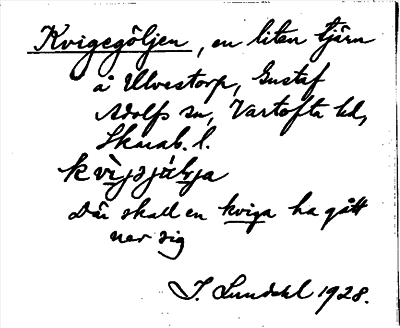 Kvigegöljen, en liten tjärn
å Ulvestorp, Gustaf
Adolfs sn, Vartofta hd,
Skarab. l.
Där skall en kviga ha gått
ner sig
I. Lundahl 1928.